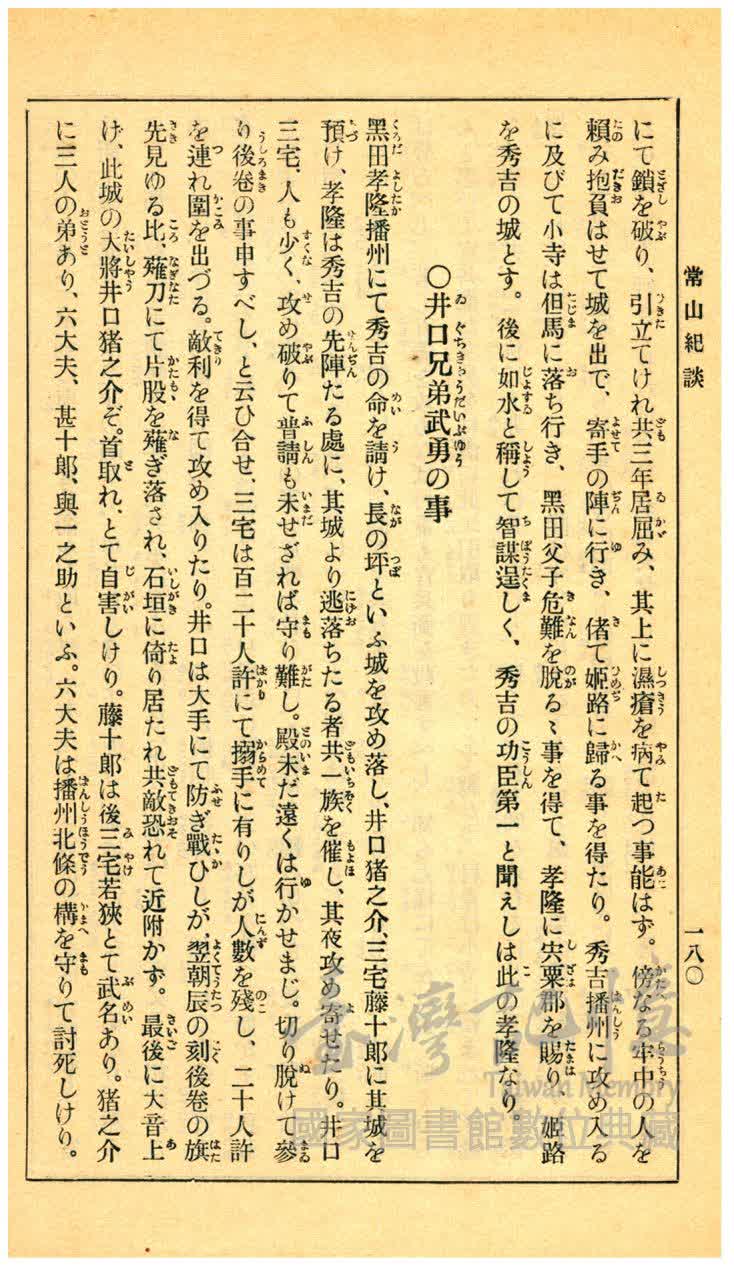 常山紀談
一八〇
にて鎖を破り、引立てけれ共三年居屈み、其上に濕瘡を病て起つ事能はず。傍なる牢中の人を
賴み抱負はせて城を出で、寄手の陣に行き、偖て姬路に歸る事を得たり。秀吉播州に攻め入る
に及びて小寺は但馬に落ち行き、黑田父子危難を脫るゝ事を得て、孝隆に宍粟郡を賜り、姬路
を秀吉の城とす。後に如水と稱して智謀逞しく、秀吉の功臣第一と聞えしは此の孝隆なり。
〇井口兄弟武勇の事
黑田孝隆播州にて秀吉の命を請け、長の坪といふ城を攻め落し、井口猪之介、三宅藤十郎に其城を
預け、孝隆は秀吉の先陣たる處に、其城より逃落ちたる者共一族を催し、其夜攻め寄せたり。井口
三宅、人も少く、攻め破りて普請も未せざれば守り難し。殿未だ遠くは行かせまじ。切り脫けて參
り後卷の事申すべし、と云ひ合せ、三宅は百二十人許にて搦手に有りしが人數を殘し、二十人許
を連れ圍を出づる。敵利を得て攻め入りたり。井口は大手にて防ぎ戰ひしが、翌朝辰の刻後卷の旗
先見ゆる比、薙刀にて片股を薙ぎ落され、石垣に倚り居たれ共敵恐れて近附かず。最後に大音上
げ、此城の大將井口猪之介ぞ。首取れ、とて自害しけり。藤十郎は後三宅若狹とて武名あり。猪之介
に三人の弟あり、六大夫、甚十郎、與一之助といふ。六大夫は播州北條の構を守りて討死しけり。
臺灣記憶
Taiwan Memory
國家圖書館數位典藏